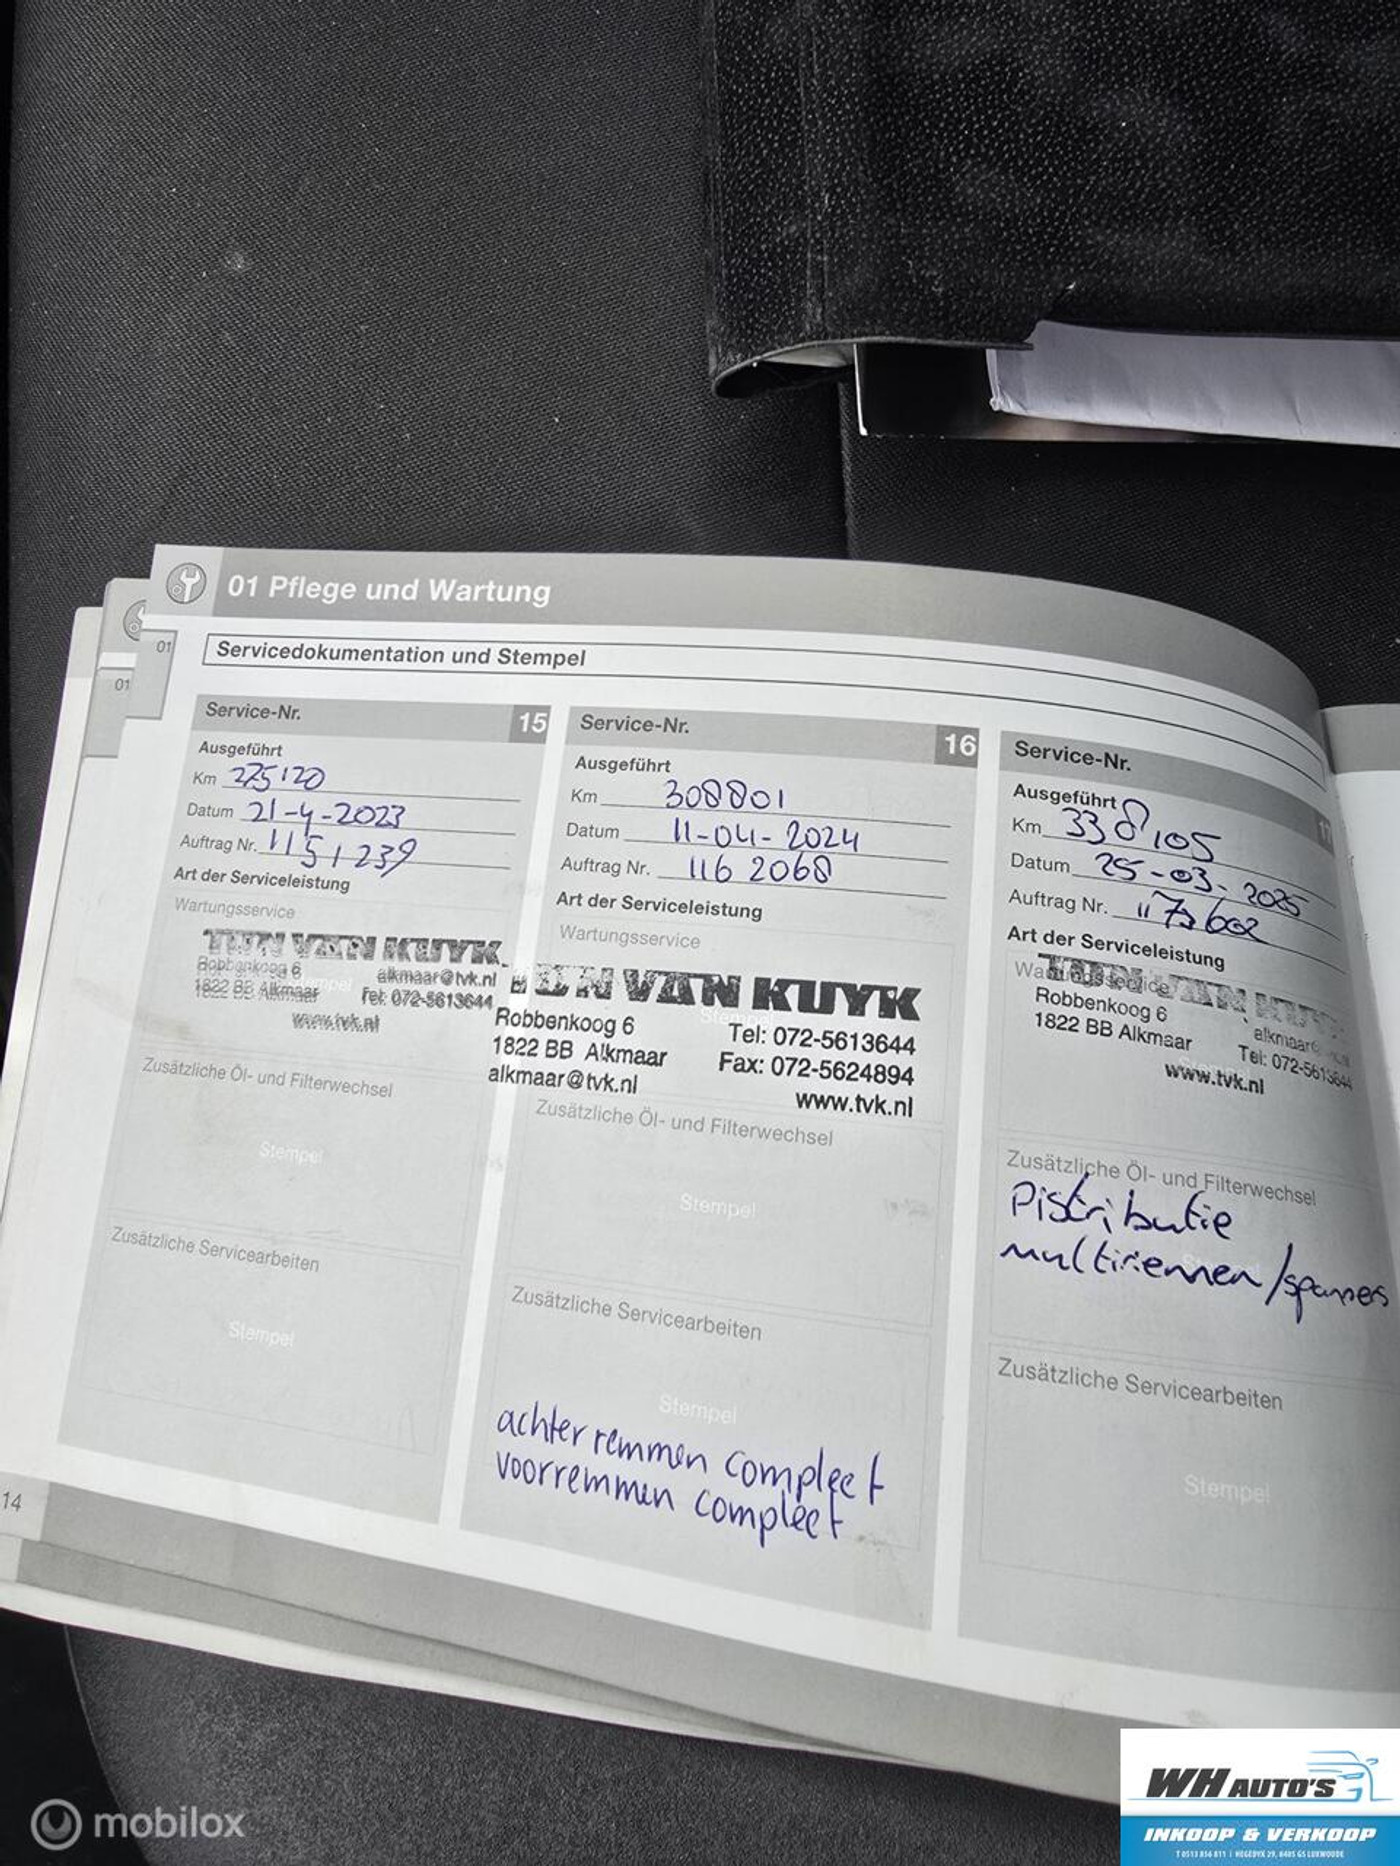 01 Pflege und Wartung
01
01
Servicedokumentation und Stempel
Service-Nr. 15
Ausgeführt
Km 275120
Datum 21-4-2023
Auftrag Nr. 1151239
Art der Serviceleistung
Wartungsservice
TON VAN KUYK
Robbenkoog 6 alkmaar@tvk.nl
1822 BB Alkmaar Tel: 072-5613644
www.tvk.nl
Zusätzliche Öl- und Filterwechsel
Stempel
Zusätzliche Servicearbeiten
Stempel
Service-Nr. 16
Ausgeführt
Km 308801
Datum 11-04-2024
Auftrag Nr. 1162068
Art der Serviceleistung
Wartungsservice
TON VAN KUYK
Stempel
Robbenkoog 6 Tel: 072-5613644
1822 BB Alkmaar Fax: 072-5624894
alkmaar@tvk.nl www.tvk.nl
Zusätzliche Öl- und Filterwechsel
Stempel
Zusätzliche Servicearbeiten
Stempel
achter remmen compleet
voorremmen compleet
Service-Nr. 17
Ausgeführt
Km 338105
Datum 25-03-2025
Auftrag Nr.
Art der Serviceleistung
Wartungsservice
TON VAN KUYK
Robbenkoog 6
1822 BB Alkmaar alkmaar
Tel: 072-5613644
www.tvk.nl
Zusätzliche Öl- und Filterwechsel
Distributie
multiriemen/spanners
Zusätzliche Servicearbeiten
Stempel
14
mobilox
WH AUTO'S
INKOOP & VERKOOP
T 0513 856 811 | HEGEDYK 29, 8405 GS LUXWOUDE